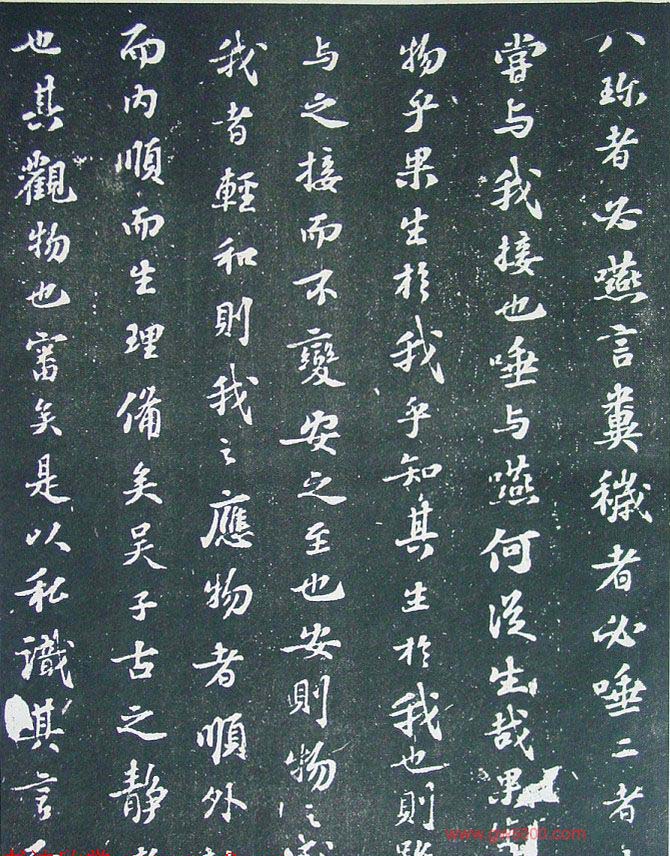 八珎者必嚥言糞穢者必唾二者
嘗与我接也唾与嚥何從生哉果
物乎果生於我乎知其生於我也則
与之接而不變安之至也安則物之
我者輕和則我之應物者順外
而内順而生理備矣吴子古之静
也其觀物也審矣是以私識其言